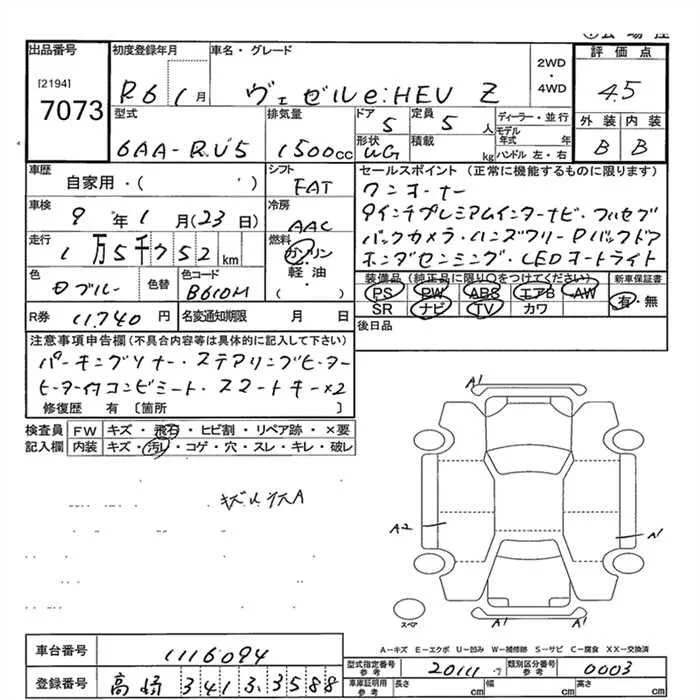 出品番号 初度登録年月 車名・グレード 2WD・4WD 評価点
[2194]
7073
R6 1月 ヴェゼルe:HEV Z 4.5
型式 排気量 ドア 定員 ディーラー・並行 外装 内装
6AA-RU5 1500cc 5 5人 モデル年式 年 B B
形状 積載 kg ハンドル 左・右
車歴 シフト セールスポイント(正常に機能するものに限ります)
自家用・( ) FAT ワンオーナー
車検 冷房 9インチプレミアムインターナビ・フルセグ
9年1月(23日) AAC バックカメラ・ハンズフリーPバックドア
走行 燃料 ホンダセンシング・LEDオートライト
1万5千752km ガソリン
軽油・( )
色 色替 色コード 装備品(純正品に限り○をつけてください) 新車保証書
ブルー B610M PS PW ABS エアB AW 有・無
SR ナビ TV カワ
R券 11,740円 名変通知期限 月 日 後日品
注意事項申告欄(不具合内容等は具体的に記入して下さい)
パーキングソナー・ステアリングヒーター
ヒーター付コンビシート・スマートキー×2
修復歴 有 [箇所 ]
検査員 FW キズ・飛石・ヒビ割・リペア跡・×要
記入欄 内装 キズ・汚レ・コゲ・穴・スレ・キレ・破レ
A1
A2
A1
スペ
A1 A1
A-キズ E-エクボ U-凹み W-補修跡 S-サビ C-腐食 XX-交換済
車台番号 1116094
型式指定番号 参考 20111 類別区分番号 参考 0003
登録番号 高崎 341 3588
車庫証明用 参考 長さ cm 幅 cm 高さ cm